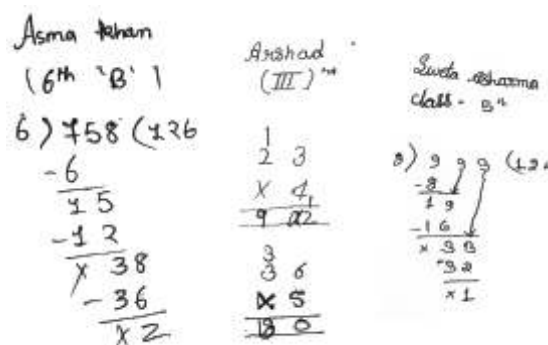 Asma khan
(6th 'B')
6) 758 (126
-6
15
-12
x 38
- 36
x2
Arshad
(III)rd
1
2 3
x 4
9 2
3
3 6
x 5
18 0
Sharma
class - 5th
8) 9 9 9 (124
-8
19
-16
x 39
32
x1